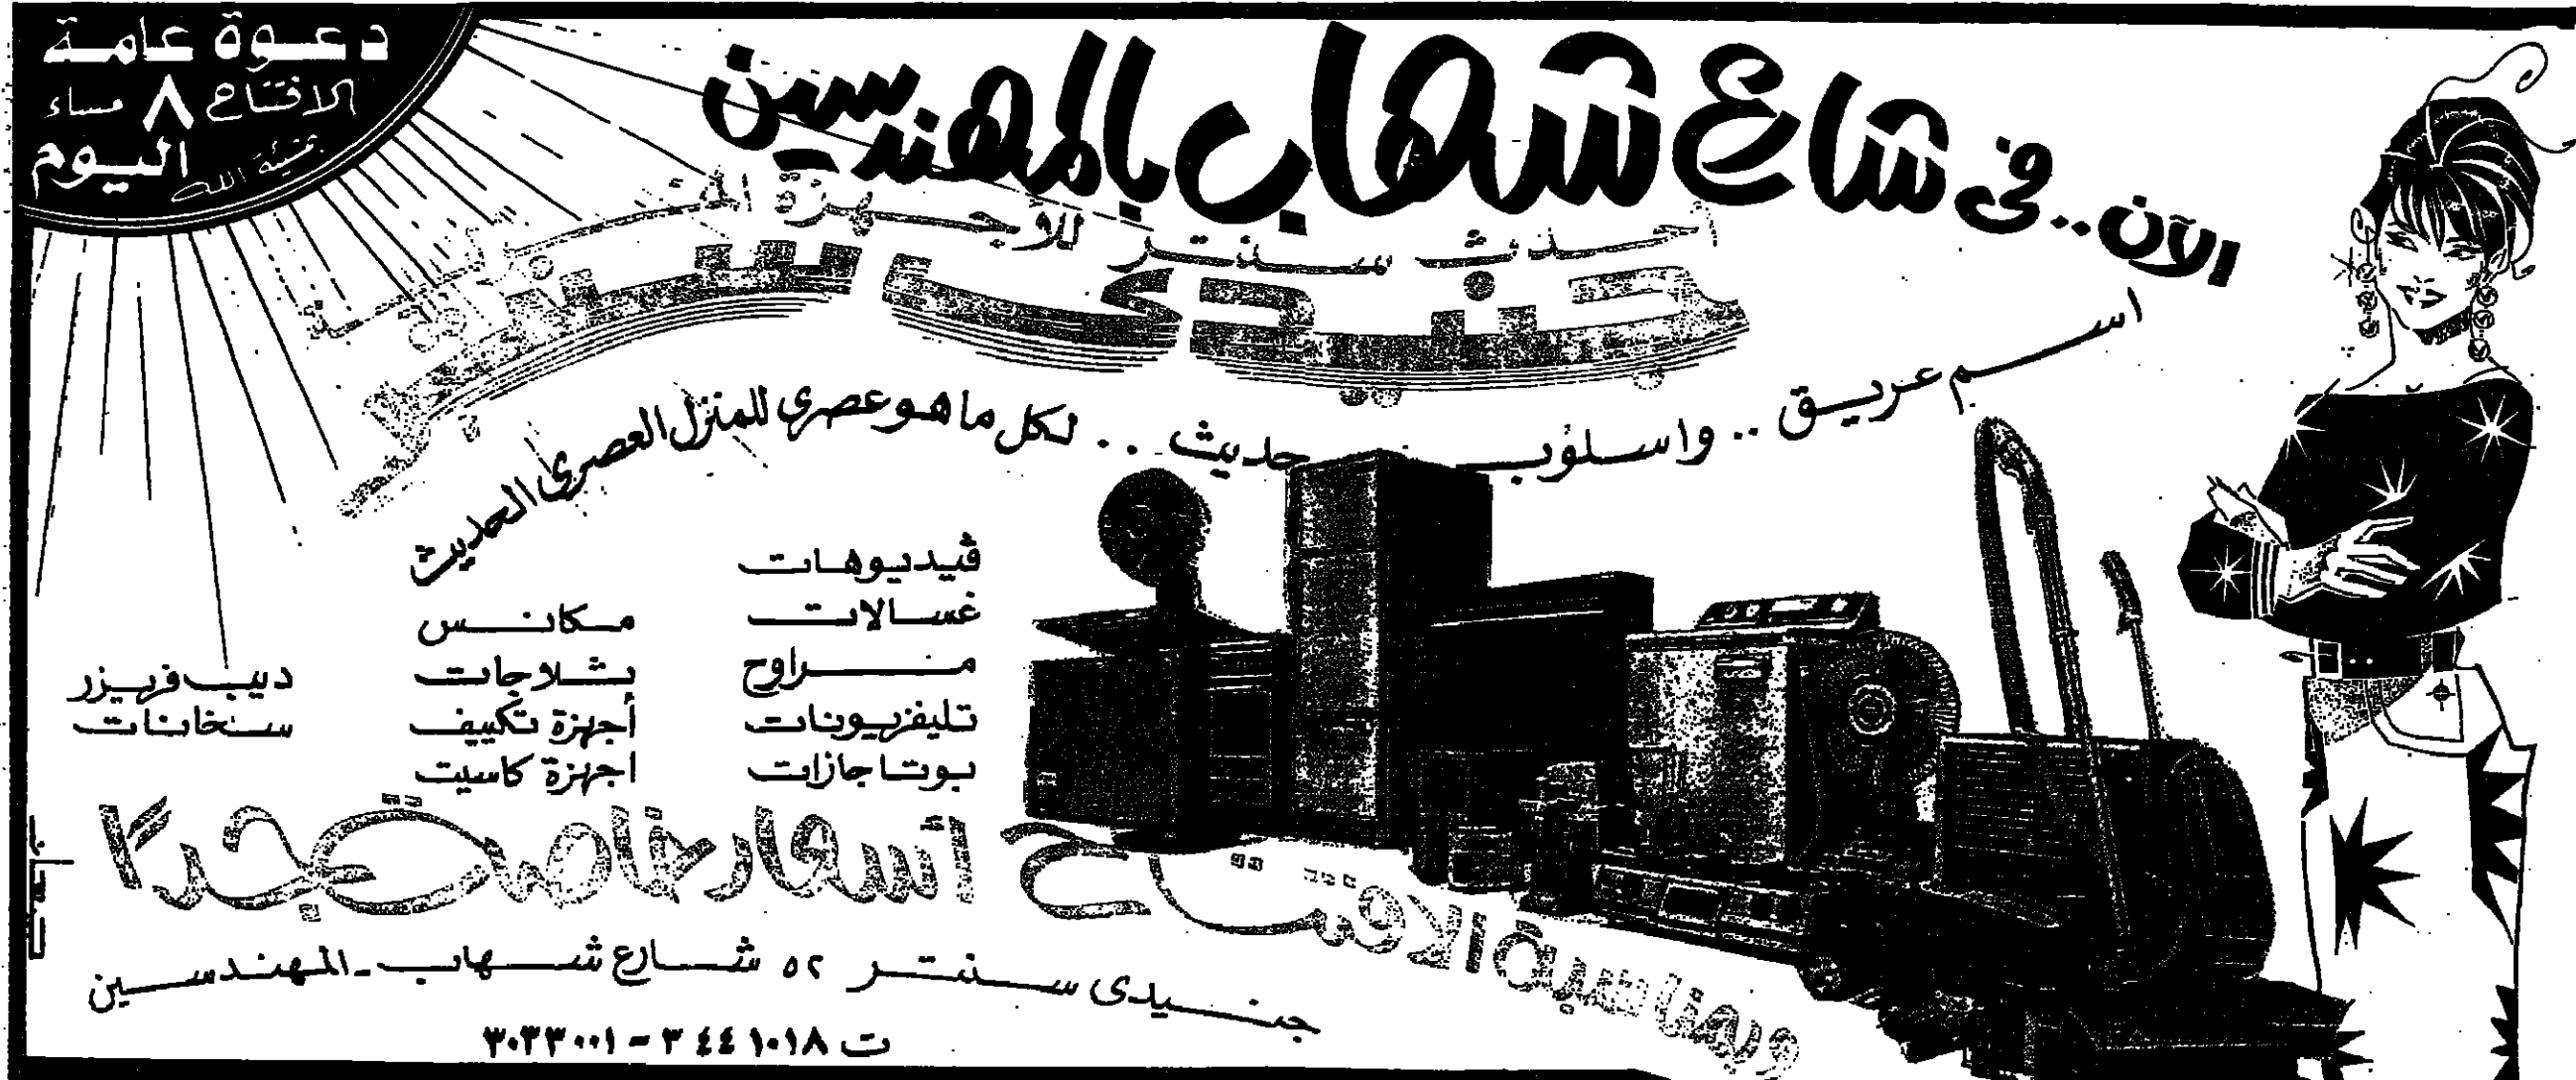 دعوة عامة
الافتتاح ٨ مساء
اليوم بمشيئة الله
الآن .. فى شارع شهاب بالمهندسين
أحدث سنتر للأجهزة المنزلية
جنيدى سنتر
اسم عريق .. واسلوب حديث .. لكل ما هو عصرى للمنزل العصرى الحديث
ڤيديوهات
غسالات
مراوح
تليفزيونات
بوتاجازات
مكانس
ثلاجات
أجهزة تكييف
اجهزة كاسيت
ديب فريزر
سخانات
وبمناسبة الافتتاح أسعار خاصة جدًا
جنيدى سنتر ٥٢ شارع شهاب - المهندسين
ت ٣٤٤١٠١٨ - ٣٠٣٣٠٠١